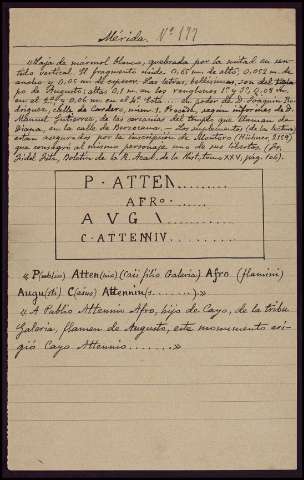 Mérida. Nº 177
"Losa de marmol blanco, quebrada por la mitad en sen-
tido vertical. El fragmento mide 0,65 m. de alto, 0,052 m. de
ancho y 0,05 m. de espesor. Las letras, bellisimas, son del tiem-
po de Augusto; altas 0,1 m. en los renglones 1º y 3º, 0,08 m.
en el 2º y 0,06 m. en el 4º. Está en poder de D. Joaquin Ro-
driguez, calle de Cordero, núm. 1. Procede, segun informes de D.
Manuel Gutierrez, de las cercanias del templo que llaman de
Diana, en la calle de Berzocana. – Los suplementos (de la lectura
están asegurados por la inscripcion de Montoro (Hübner, 2159)
que consagró al mismo personaje uno de sus libertos (D.
Fidel Fita, Boletin de la R. Acad. de la Hist., tomo XXV, pág.
P · ATTEN.........
AFR.......
A V G \.........
C · ATTENNIV.......
« P(ublio) Atten(nio) (Caii filio Galeria) Afro (flamini)
Augu(sti) C(aius) Attennin(s..........)»
« A Publio Attennio Afro, hijo de Cayo, de la tribu
Galeria, flamen de Augusto, este monumento eri-
gió Cayo Attennio........»